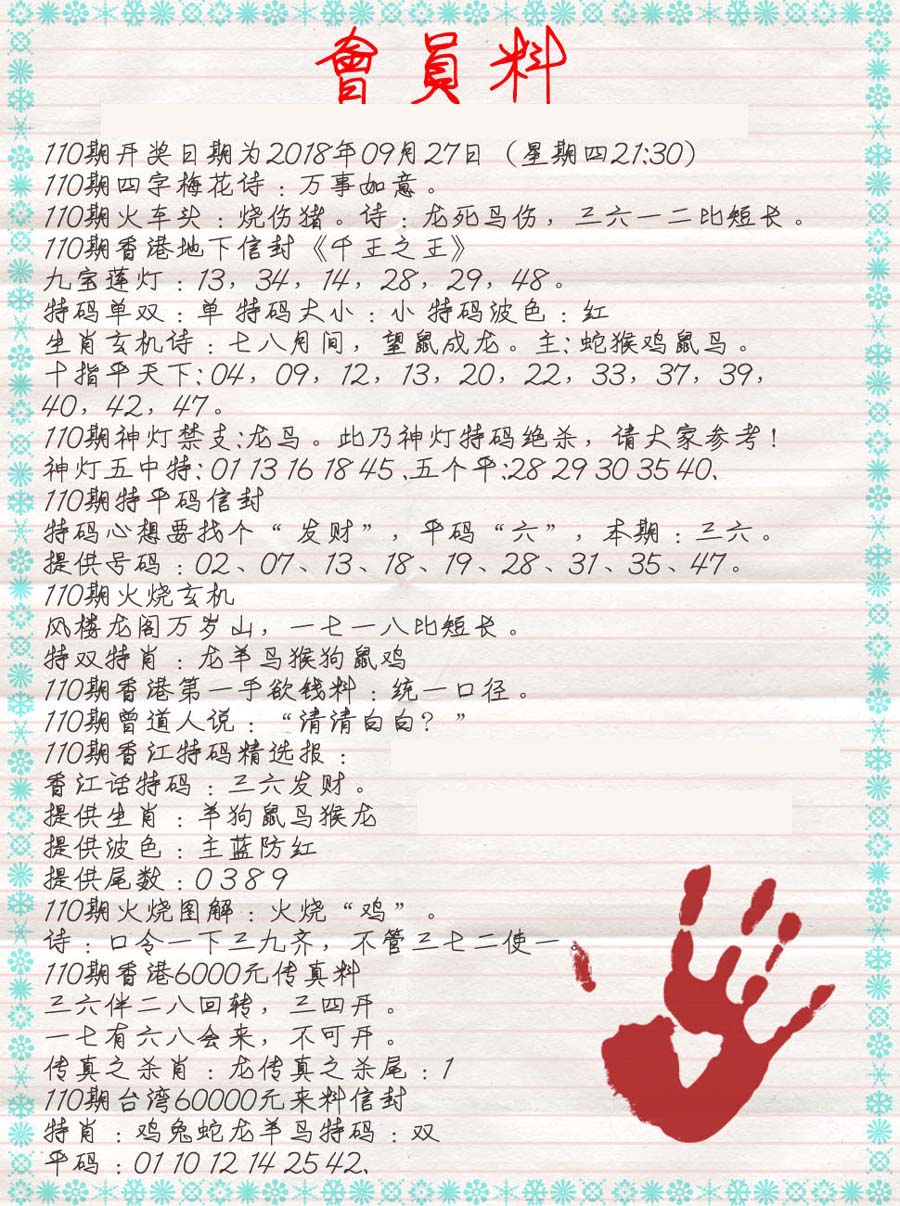 會員料
110期开奖日期为2018年09月27日（星期四21:30）
110期四字梅花诗：万事如意。
110期火车头：烧伤猪。诗：龙死马伤，三六一二比短长。
110期香港地下信封《千王之王》
九宝莲灯：13，34，14，28，29，48。
特码单双：单 特码大小：小 特码波色：红
生肖玄机诗：七八月间，望鼠成龙。主：蛇猴鸡鼠马。
十指平天下：04，09，12，13，20，22，33，37，39，
40，42，47。
110期神灯禁支:龙马。此乃神灯特码绝杀，请大家参考！
神灯五中特：01 13 16 18 45 、五个平：28 29 30 35 40、
110期特平码信封
特码心想要找个“ 发财”，平码“六”，本期：三六。
提供号码：02、07、13、18、19、28、31、35、47。
110期火烧玄机
风楼龙阁万岁山，一七一八比短长。
特双特肖：龙羊马猴狗鼠鸡
110期香港第一手欲钱料：统一口径。
110期曾道人说：“清清白白？”
110期香江特码精选报：
香江话特码：三六发财。
提供生肖：羊狗鼠马猴龙
提供波色：主蓝防红
提供尾数：0 3 8 9
110期火烧图解：火烧“鸡”。
诗：口令一下三九齐，不管三七二使一。
110期香港6000元传真料
三六伴二八回转，三四开。
一七有六八会来，不可开。
传真之杀肖：龙传真之杀尾：1
110期台湾60000元来料信封
特肖：鸡兔蛇龙羊马特码：双
平码：01 10 12 14 25 42、